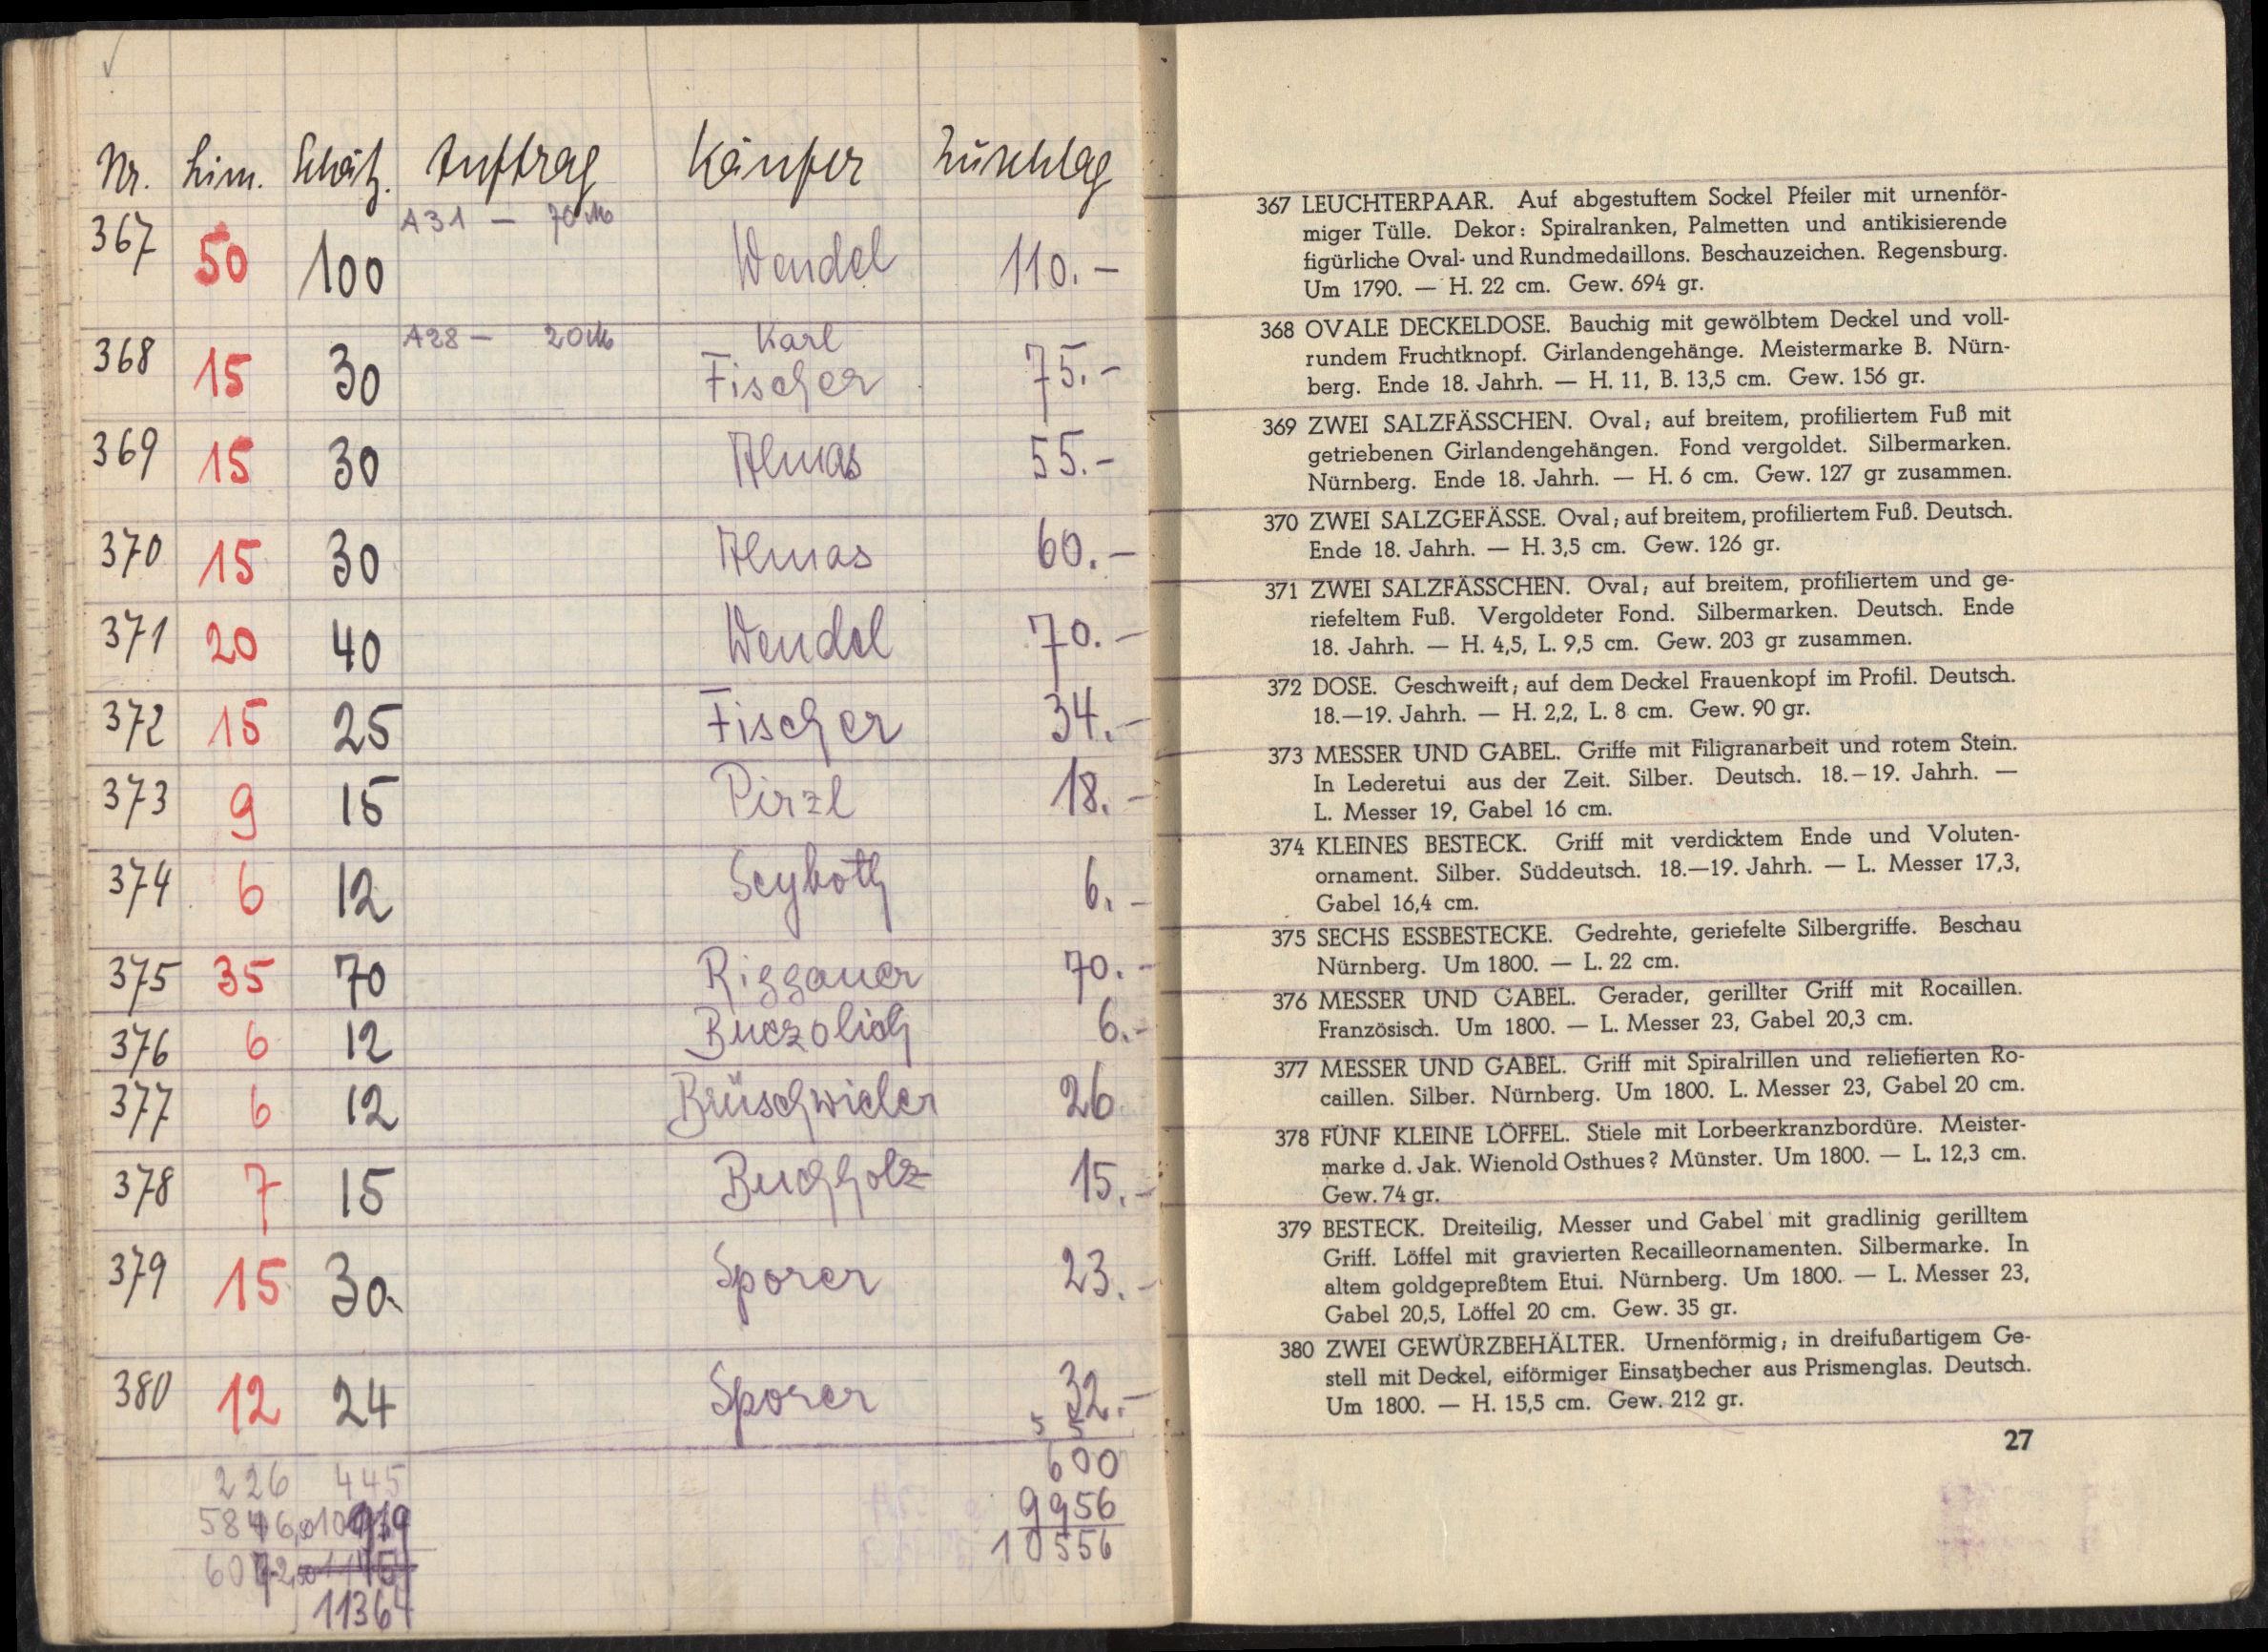 Nr. Lim. Schätz. Auftrag Käufer Zuschlag
367 50 100 A31 — 70 M Wendel 110.-
368 15 30 A28 — 20 M Karl
Fischer 75.-
369 15 30 Almas 55.-
370 15 30 Almas 60.-
371 20 40 Wendel 70.-
372 15 25 Fischer 34.-
373 9 15 Pirzl 18.-
374 6 12 Seyboth 6.-
375 35 70 Riggauer 70.-
376 6 12 Buczolich 6.-
377 6 12 Brüschwieler 26
378 7 15 Buchholz 15.-
379 15 30 Sporer 23.-
380 12 24 Sporer 32.-
5 5
226 445 600
9956
10556
11364
367 LEUCHTERPAAR. Auf abgestuftem Sockel Pfeiler mit urnenför-
miger Tülle. Dekor: Spiralranken, Palmetten und antikisierende
figürliche Oval- und Rundmedaillons. Beschauzeichen. Regensburg.
Um 1790. — H. 22 cm. Gew. 694 gr.
368 OVALE DECKELDOSE. Bauchig mit gewölbtem Deckel und voll-
rundem Fruchtknopf. Girlandengehänge. Meistermarke B. Nürn-
berg. Ende 18. Jahrh. — H. 11, B. 13,5 cm. Gew. 156 gr.
369 ZWEI SALZFÄSSCHEN. Oval; auf breitem, profiliertem Fuß mit
getriebenen Girlandengehängen. Fond vergoldet. Silbermarken.
Nürnberg. Ende 18. Jahrh. — H. 6 cm. Gew. 127 gr zusammen.
370 ZWEI SALZGEFÄSSE. Oval; auf breitem, profiliertem Fuß. Deutsch.
Ende 18. Jahrh. — H. 3,5 cm. Gew. 126 gr.
371 ZWEI SALZFÄSSCHEN. Oval; auf breitem, profiliertem und ge-
riefeltem Fuß. Vergoldeter Fond. Silbermarken. Deutsch. Ende
18. Jahrh. — H. 4,5, L. 9,5 cm. Gew. 203 gr zusammen.
372 DOSE. Geschweift; auf dem Deckel Frauenkopf im Profil. Deutsch.
18.—19. Jahrh. — H. 2,2, L. 8 cm. Gew. 90 gr.
373 MESSER UND GABEL. Griffe mit Filigranarbeit und rotem Stein.
In Lederetui aus der Zeit. Silber. Deutsch. 18.—19. Jahrh. —
L. Messer 19, Gabel 16 cm.
374 KLEINES BESTECK. Griff mit verdicktem Ende und Voluten-
ornament. Silber. Süddeutsch. 18.—19. Jahrh. — L. Messer 17,3,
Gabel 16,4 cm.
375 SECHS ESSBESTECKE. Gedrehte, geriefelte Silbergriffe. Beschau
Nürnberg. Um 1800. — L. 22 cm.
376 MESSER UND GABEL. Gerader, gerillter Griff mit Rocaillen.
Französisch. Um 1800. — L. Messer 23, Gabel 20,3 cm.
377 MESSER UND GABEL. Griff mit Spiralrillen und reliefierten Ro-
caillen. Silber. Nürnberg. Um 1800. L. Messer 23, Gabel 20 cm.
378 FÜNF KLEINE LÖFFEL. Stiele mit Lorbeerkranzbordüre. Meister-
marke d. Jak. Wienold Osthues? Münster. Um 1800. — L. 12,3 cm.
Gew. 74 gr.
379 BESTECK. Dreiteilig, Messer und Gabel mit gradlinig gerilltem
Griff. Löffel mit gravierten Recailleornamenten. Silbermarke. In
altem goldgepreßtem Etui. Nürnberg. Um 1800. — L. Messer 23,
Gabel 20,5, Löffel 20 cm. Gew. 35 gr.
380 ZWEI GEWÜRZBEHÄLTER. Urnenförmig; in dreifußartigem Ge-
stell mit Deckel, eiförmiger Einsatzbecher aus Prismenglas. Deutsch.
Um 1800. — H. 15,5 cm. Gew. 212 gr.
27